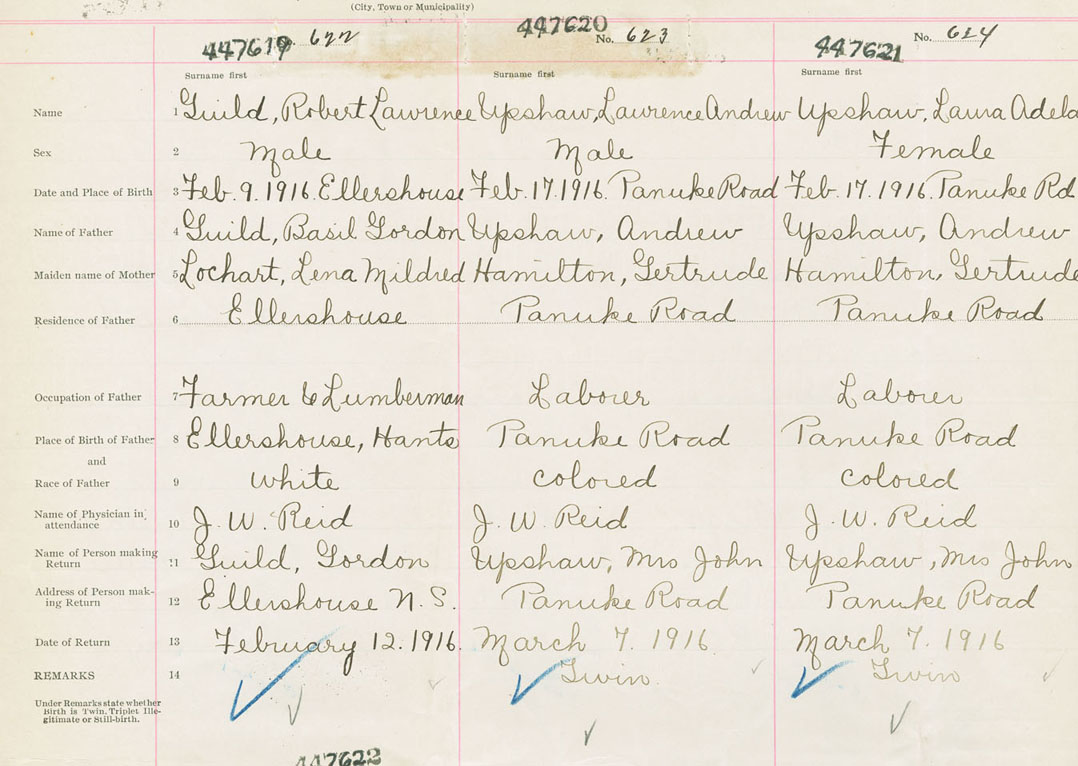 (City, Town or Municipality)
447619 622 447620 No. 623 447621 No. 624
Surname first Surname first Surname first
Name 1 Guild, Robert Lawrence Upshaw, Laurence Andrew Upshaw, Laura Adela
Sex 2 Male Male Female
Date and Place of Birth 3 Feb. 9. 1916. Ellershouse Feb. 17. 1916. Panuke Road Feb. 17. 1916. Panuke Rd
Name of Father 4 Guild, Basil Gordon Upshaw, Andrew Upshaw, Andrew
Maiden name of Mother 5 Lochart, Lena Mildred Hamilton, Gertrude Hamilton, Gertrude
Residence of Father 6 Ellershouse Panuke Road Panuke Road
Occupation of Father 7 Farmer & Lumberman Laborer Laborer
Place of Birth of Father 8 Ellershouse, Hants Panuke Road Panuke Road
and
Race of Father 9 White Colored Colored
Name of Physician in
attendance 10 J. W. Reid J. W. Reid J. W. Reid
Name of Person making
Return 11 Guild, Gordon Upshaw, Mrs John Upshaw, Mrs John
Address of Person mak-
ing Return 12 Ellershouse N. S. Panuke Road Panuke Road
Date of Return 13 February 12. 1916. March 7. 1916 March 7. 1916
REMARKS 14 Twin. Twin
Under Remarks state whether
Birth is Twin, Triplet Ille-
gitimate or Still-birth.
447622